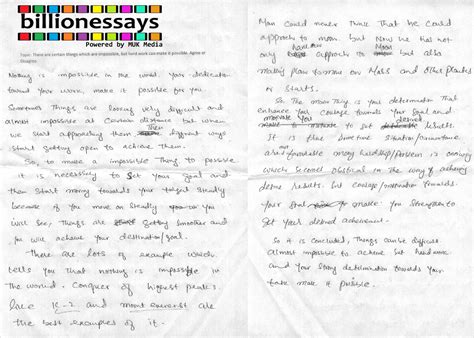 billionessays
Powered by MUK Media
Topic: There are certain things which are impossible, but hard work can make it possible. Agree or
Disagree
Nothing is impossible in the world. Your dedication
toward your work, make it possible for you.
Sometimes Things are looking very difficult and
almost impossible at certain distance but when
we start approaching them Then different ways
start getting open to achieve them.
So, to make a impossible Thing to possible
it is necessary to set your goal and
then start moving towards your target steadily
because if you move on steady you
will see, Things are getting smoother and
you will achieve your destination/goal.
There are lots of example which
tells you that nothing is impossible in
the world. Conquer of highest peaks
like K-2 and mount everest are
the best examples of it.
Man could never think That he could
approach to moon. but Now He has not
only approach to moon but also
making plan to move on Mars and other planets
or stars.
So The more Thing is your determination that
enhance you courage towards your goal and
motivate to set desired results.
It is true sometime situation/
and hardship/problem is
which become obstical in the way of achieving
desire results, but courage/motivation towards
your goal make you strengthen to
get your desired achievement.
So it is concluded, Things can be difficult
almost impossible to achieve but hard work
and your strong determination towards your
take make it possible.